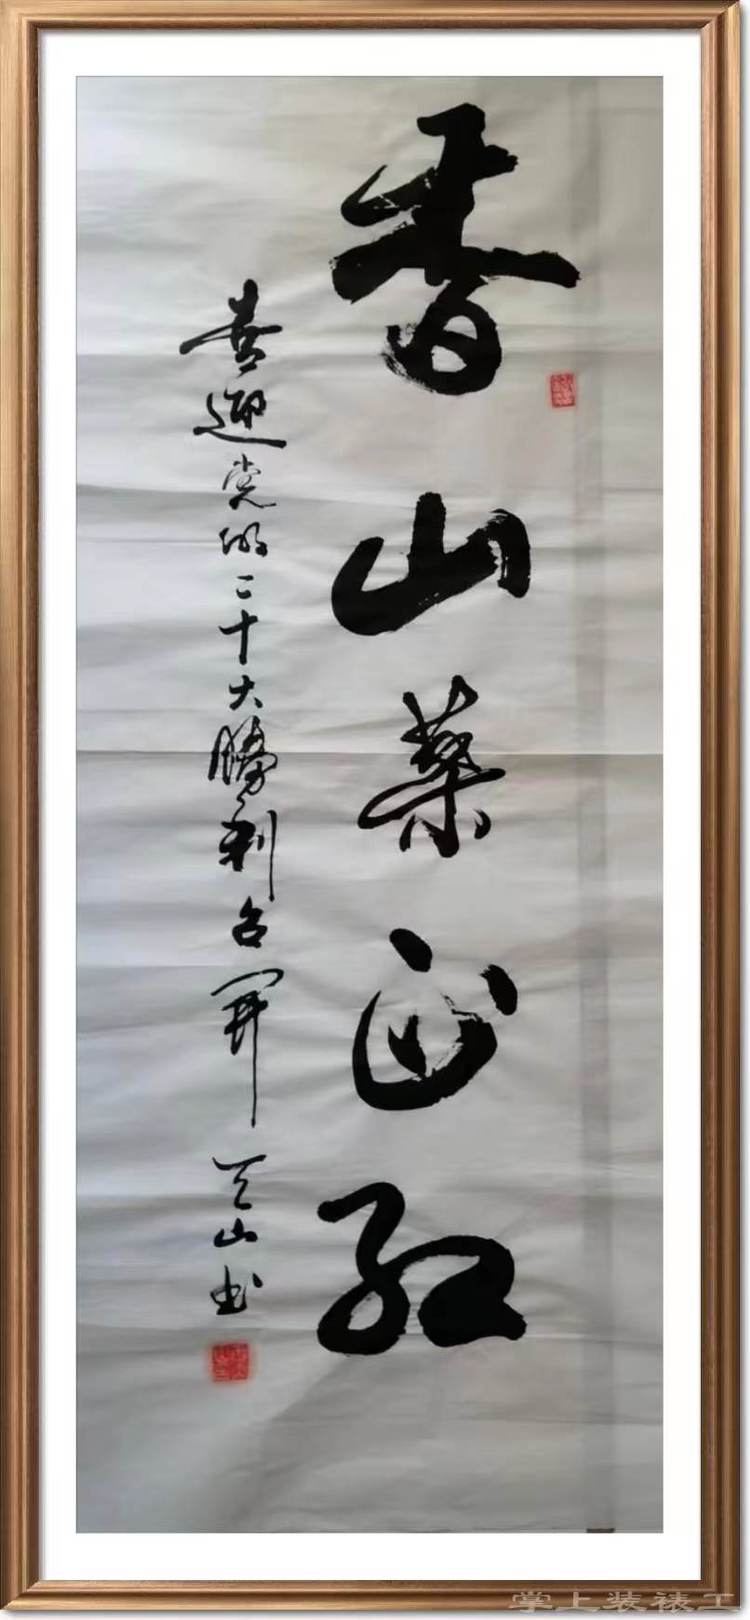 香山葉正红
喜迎党的二十大勝利召开
天山书
掌上装裱工